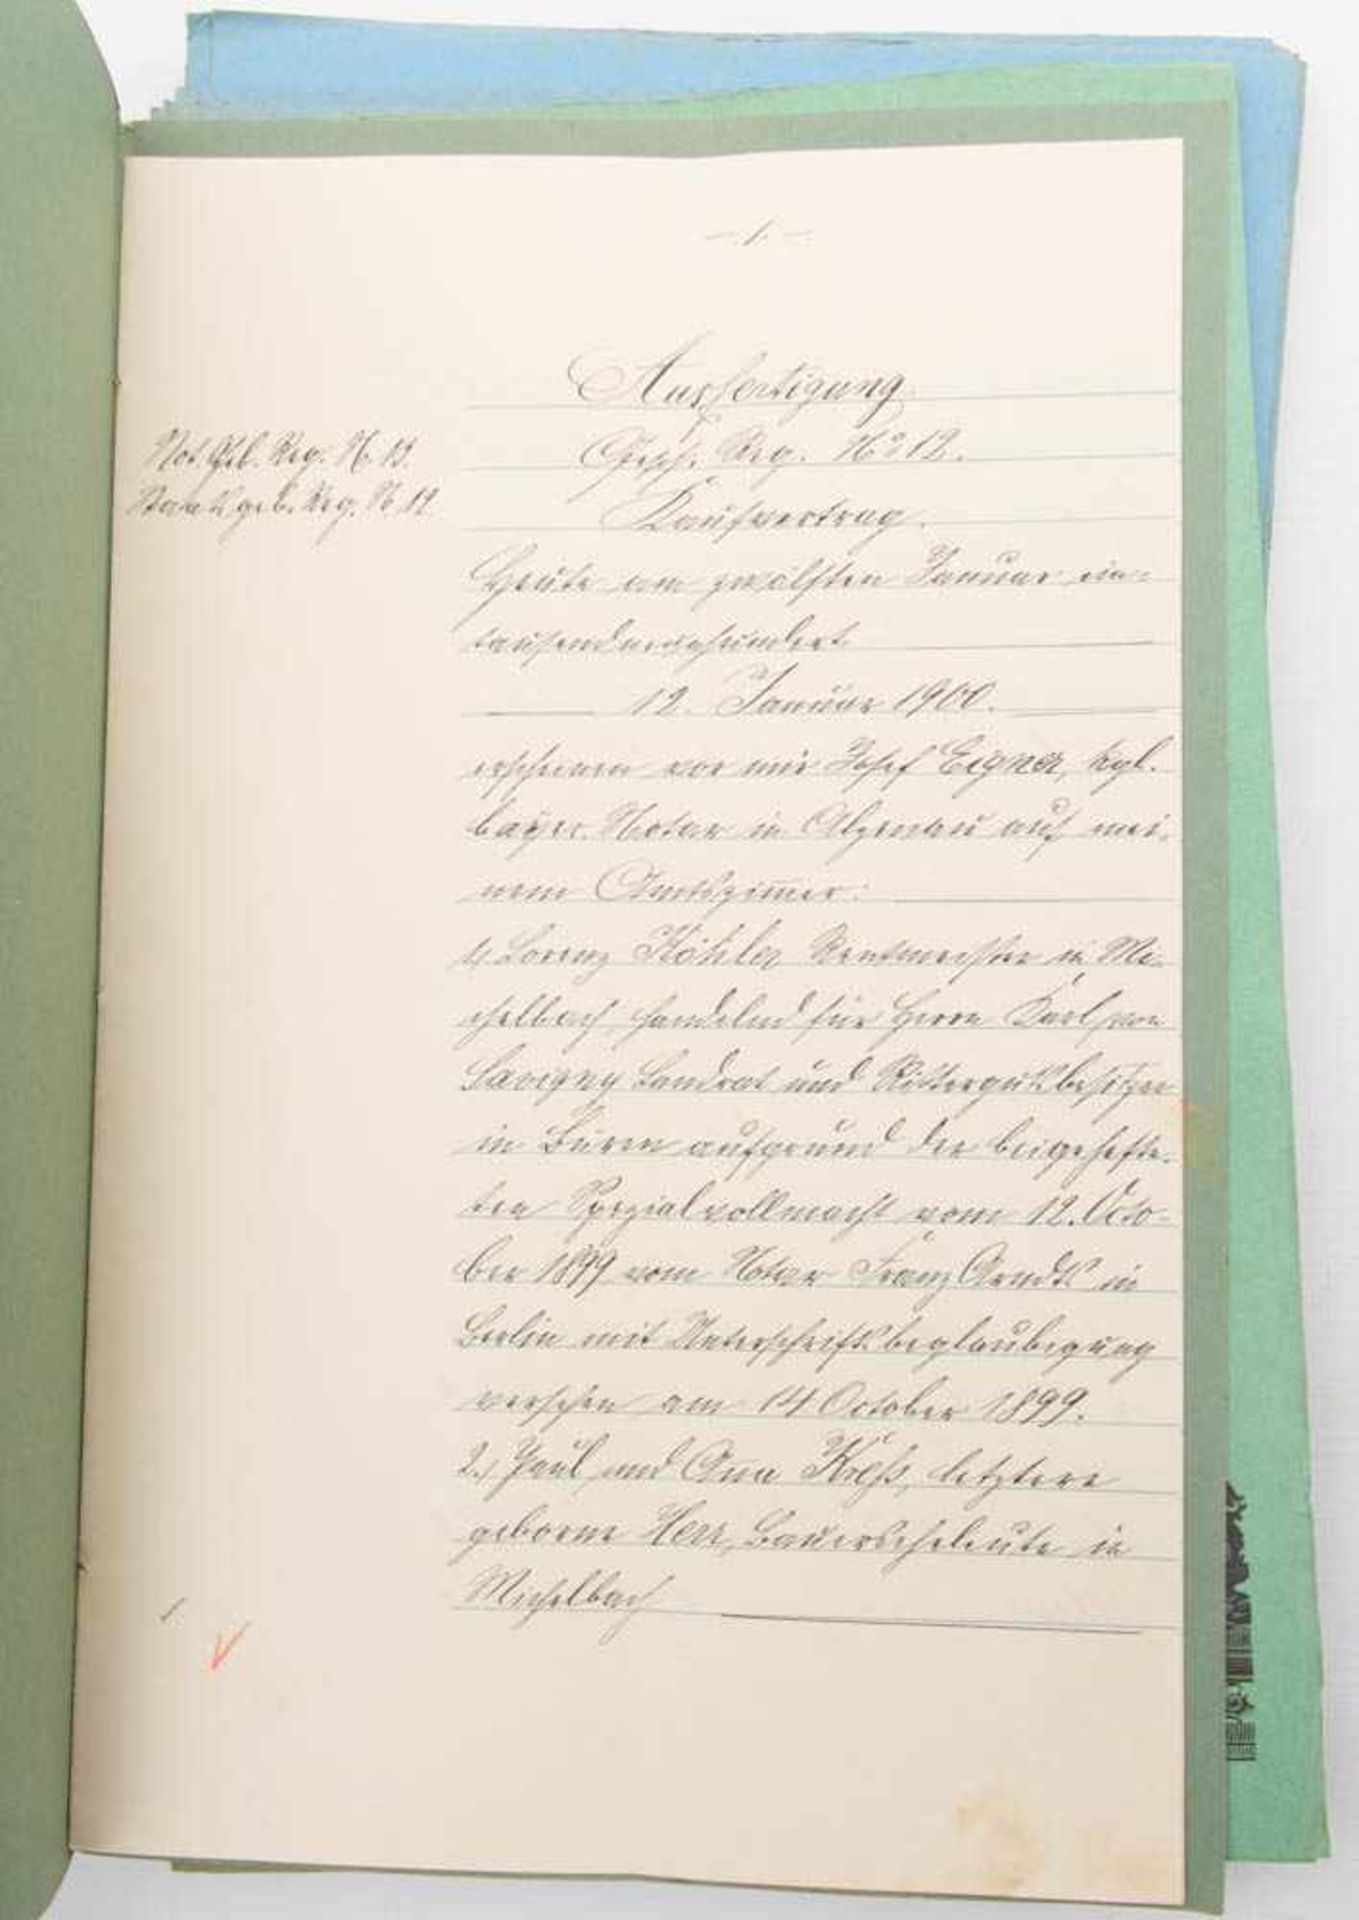 - 1. -
Ausfertigung
Not. Geb. Reg. N. 13.
Gesch. Reg. No 12.
Staatsgeb. Reg. N. 19
Kaufvertrag.
Heute am zwölften Januar ein-
tausendneunhundert
12. Januar 1900.
erscheinen vor mir Josef Eigner, kgl.
bayer. Notar in Alzenau auf mei-
nem Amtszimmer:
1, Lorenz Köhler Rentmeister in Mi-
chelbach handelnd für Herrn Karl von
Savigny Landrat und Rittergutsbesitzer
in Büren aufgrund der beigehefte-
ten Spezialvollmacht vom 12. Octo-
ber 1899 vom Notar Franz Arndts in
Berlin mit Unterschriftsbeglaubigung
versehen am 14 October 1899.
2., Paul und Anna Kreß, letztere
geborne Herr, Bauerseheleute in
Michelbach